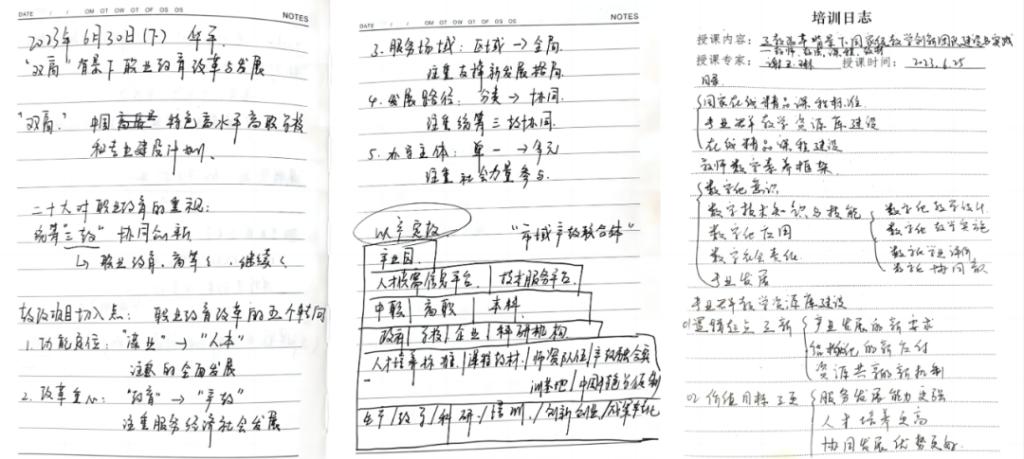 DATE / / NOTES
2023年6月30日(下)
"双高"背景下职业教育改革与发展
"双高"中国 特色高水平高职学校
和专业建设计划.
二十大对职业教育的重视:
统筹"三教"协同创新
↳职业教育.高等〈.继续〈
教改项目切入点: 职业教育改革的五个转向
1.功能定位:"谋业"→"人本"
注重的全面发展
2.改革重心:"教育"→"产教"
注重服务经济社会发展
DATE / / NOTES
3.服务场域:区域→全局.
注重支撑新发展格局.
4.发展路径: 分类→协同.
注重统筹三教协同.
5.办学主体:单一→多元
注重社会力量参与.
以产定教. "市域产教联合体"
产业园.
人才供需信息平台. 技术服务平台
中职 高职 本科
政府 学校 企业 科研机构
人才培养标准 课程教材 师资队伍 产教融合实
训基地
生产/教学/科研/培训/创新创业/成果转化
培训日志
授课内容: 三教改革背景下国家级教学创新团队建设与实践
教师、教法、课程、教材
授课专家: 授课时间: 2023.6.25
国家在线精品课程标准
专业教学资源库建设
在线精品课程建设
教师数字素养框架
数字化意识
数字技术知识与技能 数字化教学设计
数字化应用 数字化教学实施
数字社会责任 数字化学业评价
专业发展 数字化协同育
专业教学资源库建设
01逻辑起点三新 产业发展的新要求
的新应付
资源共享的新机制
02价值目标三更 服务发展能力更强
人才培养更高
协同发展优势更好